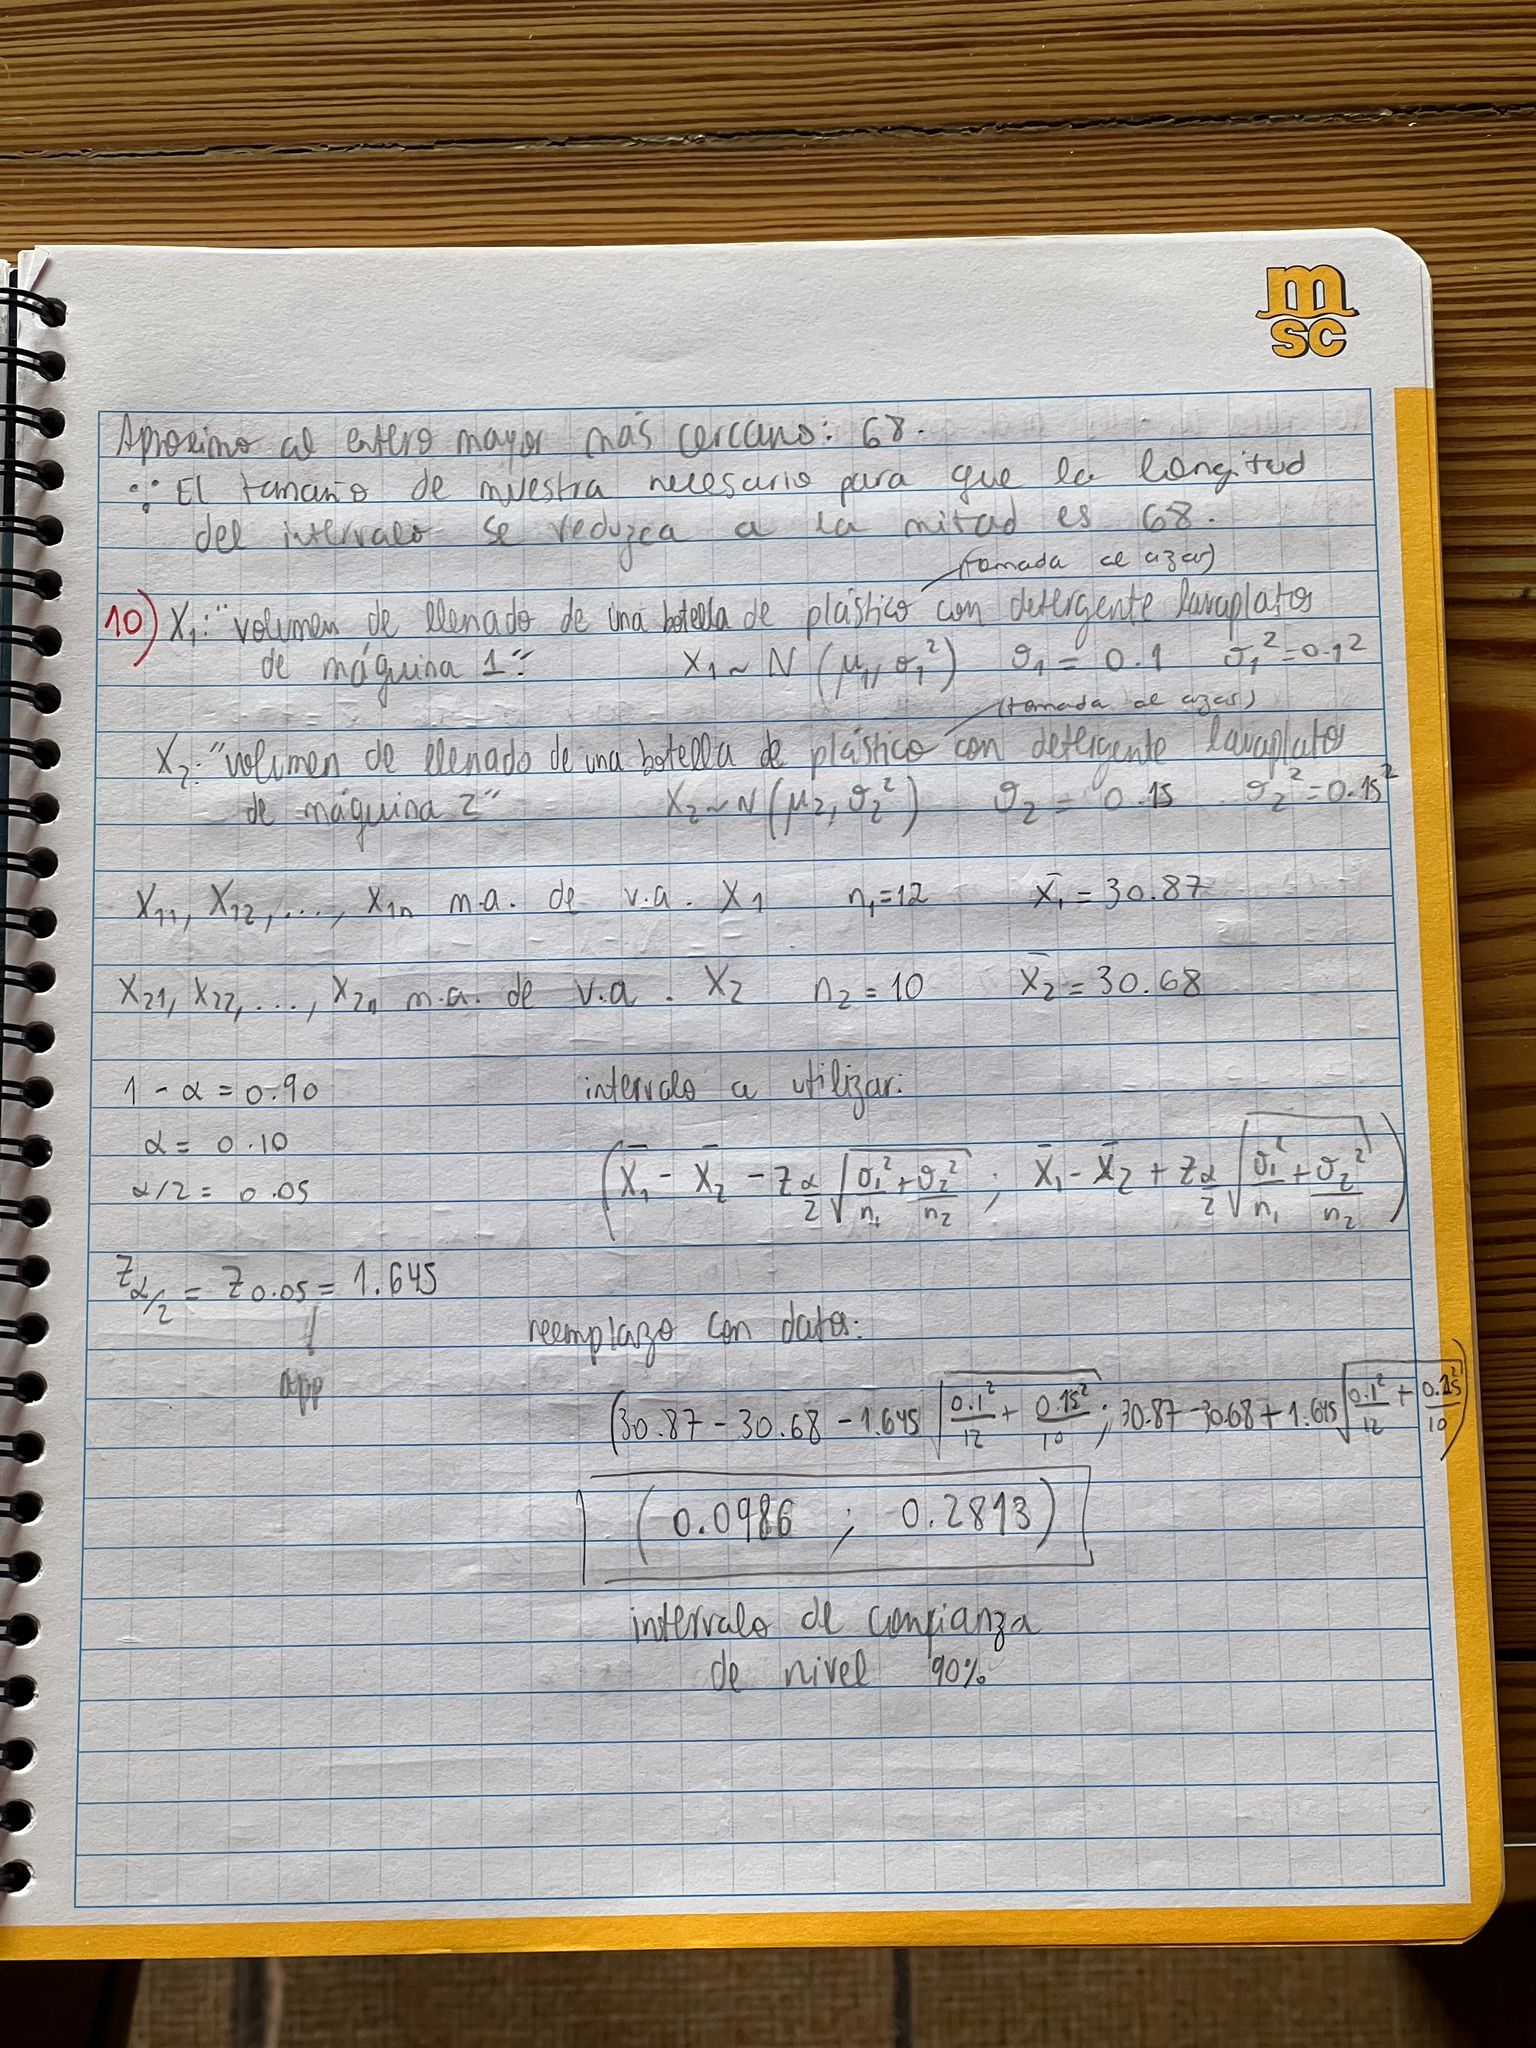 m
sc
Aproximo al entero mayor más cercano: 68.
∴ El tamaño de muestra necesario para que la longitud
del intervalo se reduzca a la mitad es 68.
(tomada al azar)
10) X₁: "volumen de llenado de una botella de plástico con detergente lavaplatos
de máquina 1" X₁ ~ N (μ₁, σ₁²) σ₁ = 0.1 σ₁² = 0.1²
(tomada al azar)
X₂: "volumen de llenado de una botella de plástico con detergente lavaplatos
de máquina 2" X₂ ~ N (μ₂, σ₂²) σ₂ = 0.15 σ₂² = 0.15²
X₁₁, X₁₂, ..., X₁ₙ m.a. de v.a. X₁ n₁ = 12 x̄₁ = 30.87
X₂₁, X₂₂, ..., X₂ₙ m.a. de v.a. X₂ n₂ = 10 x̄₂ = 30.68
1 - α = 0.90 intervalo a utilizar:
α = 0.10
α/2 = 0.05 (X̄₁ - X̄₂ - z_α/2 √(σ₁²/n₁ + σ₂²/n₂) ; X̄₁ - X̄₂ + z_α/2 √(σ₁²/n₁ + σ₂²/n₂))
z_α/2 = z_0.05 = 1.645
reemplazo con datos:
app
(30.87 - 30.68 - 1.645 √(0.1²/12 + 0.15²/10) ; 30.87 - 30.68 + 1.645 √(0.1²/12 + 0.15²/10))
(0.0986 ; 0.2813)
intervalo de confianza
de nivel 90%